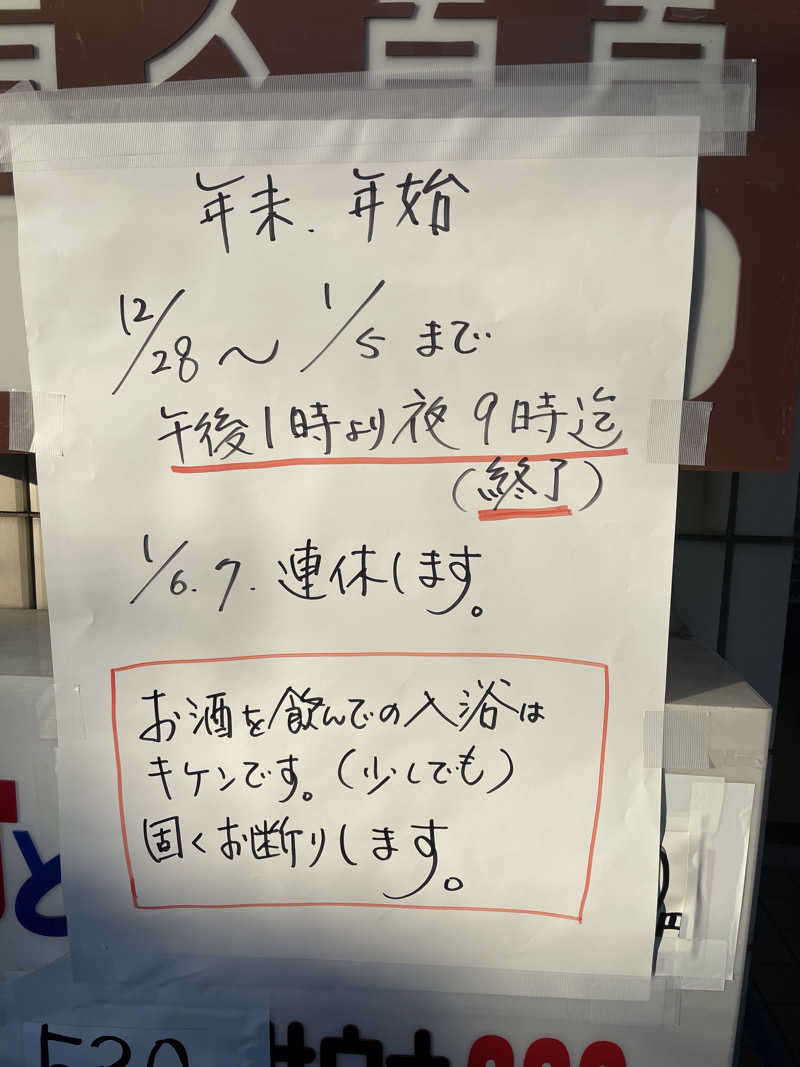 年末.年始
12/28〜1/5まで
午後1時より夜9時迄
(終了)
1/6.7.連休します。
お酒を飲んでの入浴は
キケンです。(少しでも)
固くお断りします。
円
と
530